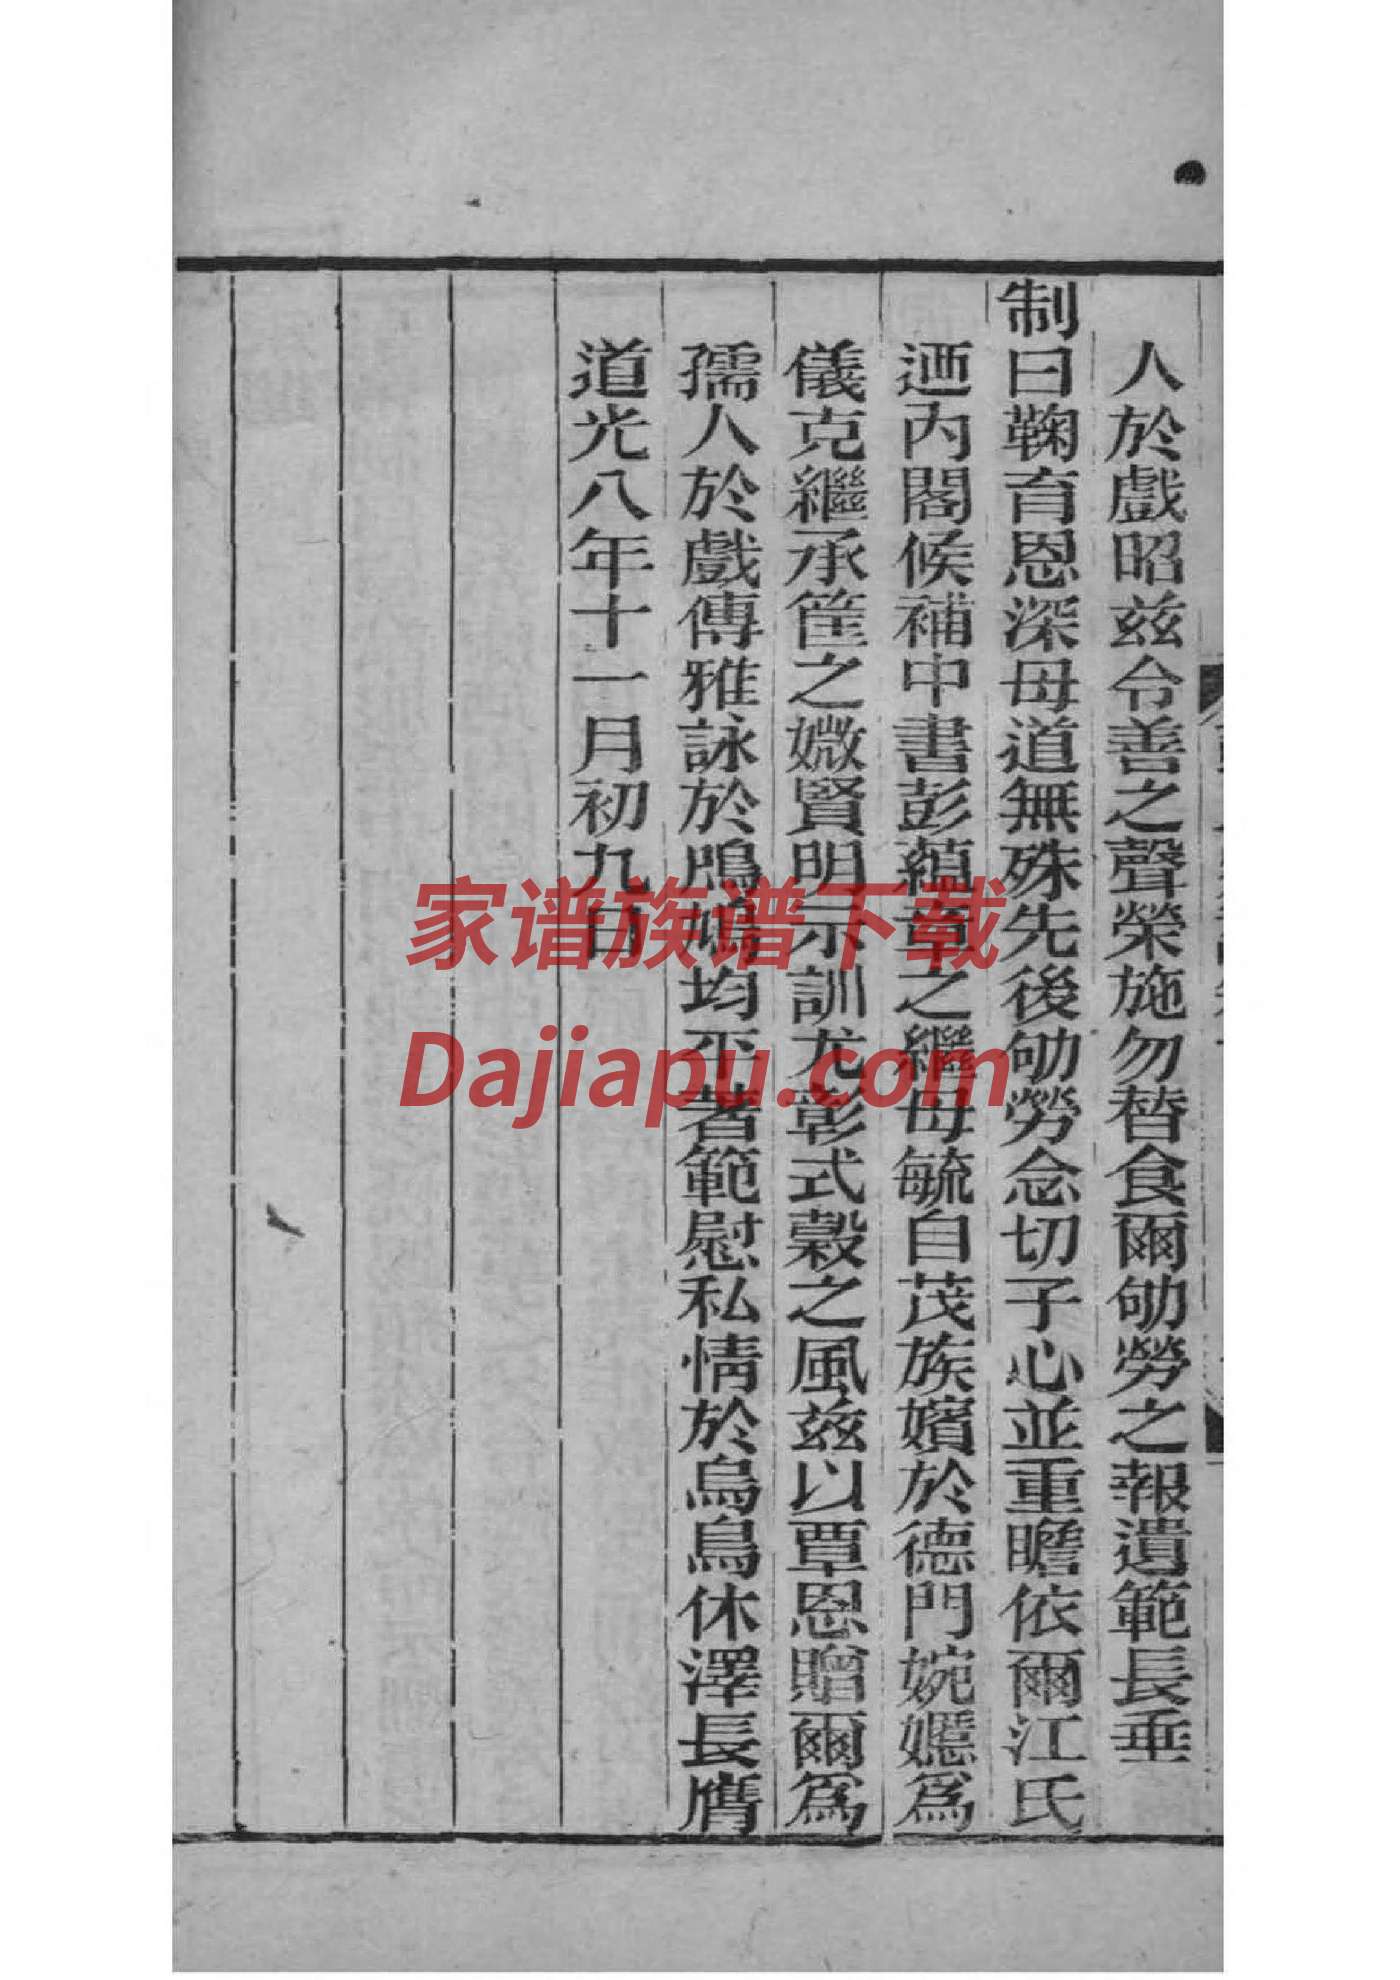 人於戲昭兹令善之聲榮施勿替食爾劬勞之報遺範長垂
制曰鞠育恩深母道無殊先後劬勞念切子心並重瞻依爾江氏
迺內閣候補中書彭蘊章之繼母毓自茂族嬪於德門婉嫕為
儀克繼承筐之媺賢明示訓尤彰式穀之風兹以覃恩贈爾為
孺人於戲傳雅詠於鳲鳩均平著範慰私情於烏鳥休澤長膺
道光八年十一月初九日
家谱族谱下载
Dajiapu.com